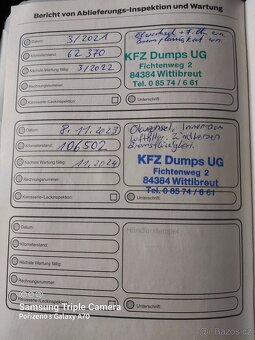 Bericht von Ablieferungs-Inspektion und Wartung
Datum: 3/2021
Kilometerstand: 62 370
Nächste Wartung fällig: 3/2022
Rechnungsnummer:
Karosserie-/Lackinspektion:
Ölwechsel
KFZ Dumps UG
Fichtenweg 2
84384 Wittibreut
Tel. 0 85 74 / 6 61
Unterschrift:
Datum: 8.11.2023
Kilometerstand: 106502
Nächste Wartung fällig: 11/2024
Rechnungsnummer:
Karosserie-/Lackinspektion:
Ölwechsel, Innenraum
Luftfilter, Zündkerzen
Bremsflüssigkeit.
KFZ Dumps UG
Fichtenweg 2
84384 Wittibreut
Tel. 0 85 74 / 6 61
Unterschrift:
Datum:
Kilometerstand:
Nächste Wartung fällig:
Rechnungsnummer:
Karosserie-/Lackinspektion:
Händlerstempel
Unterschrift:
Samsung Triple Camera
Pořízeno s Galaxy A70
bazos.cz